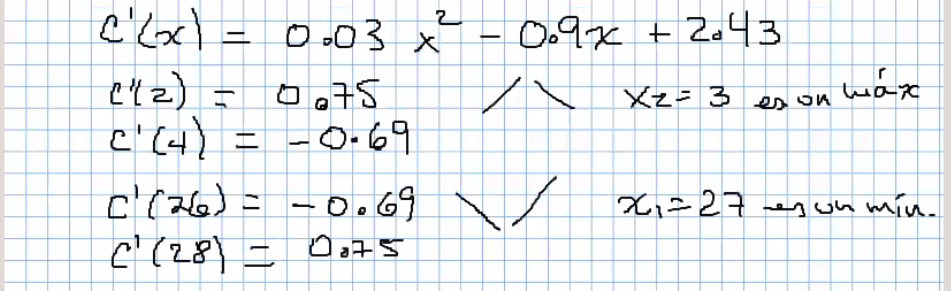 C'(x) = 0.03 x² - 0.9x + 2.43
C'(2) = 0.75 x₂ = 3 es un máx
C'(4) = -0.69
C'(26) = -0.69 x₁ = 27 es un mín.
C'(28) = 0.75